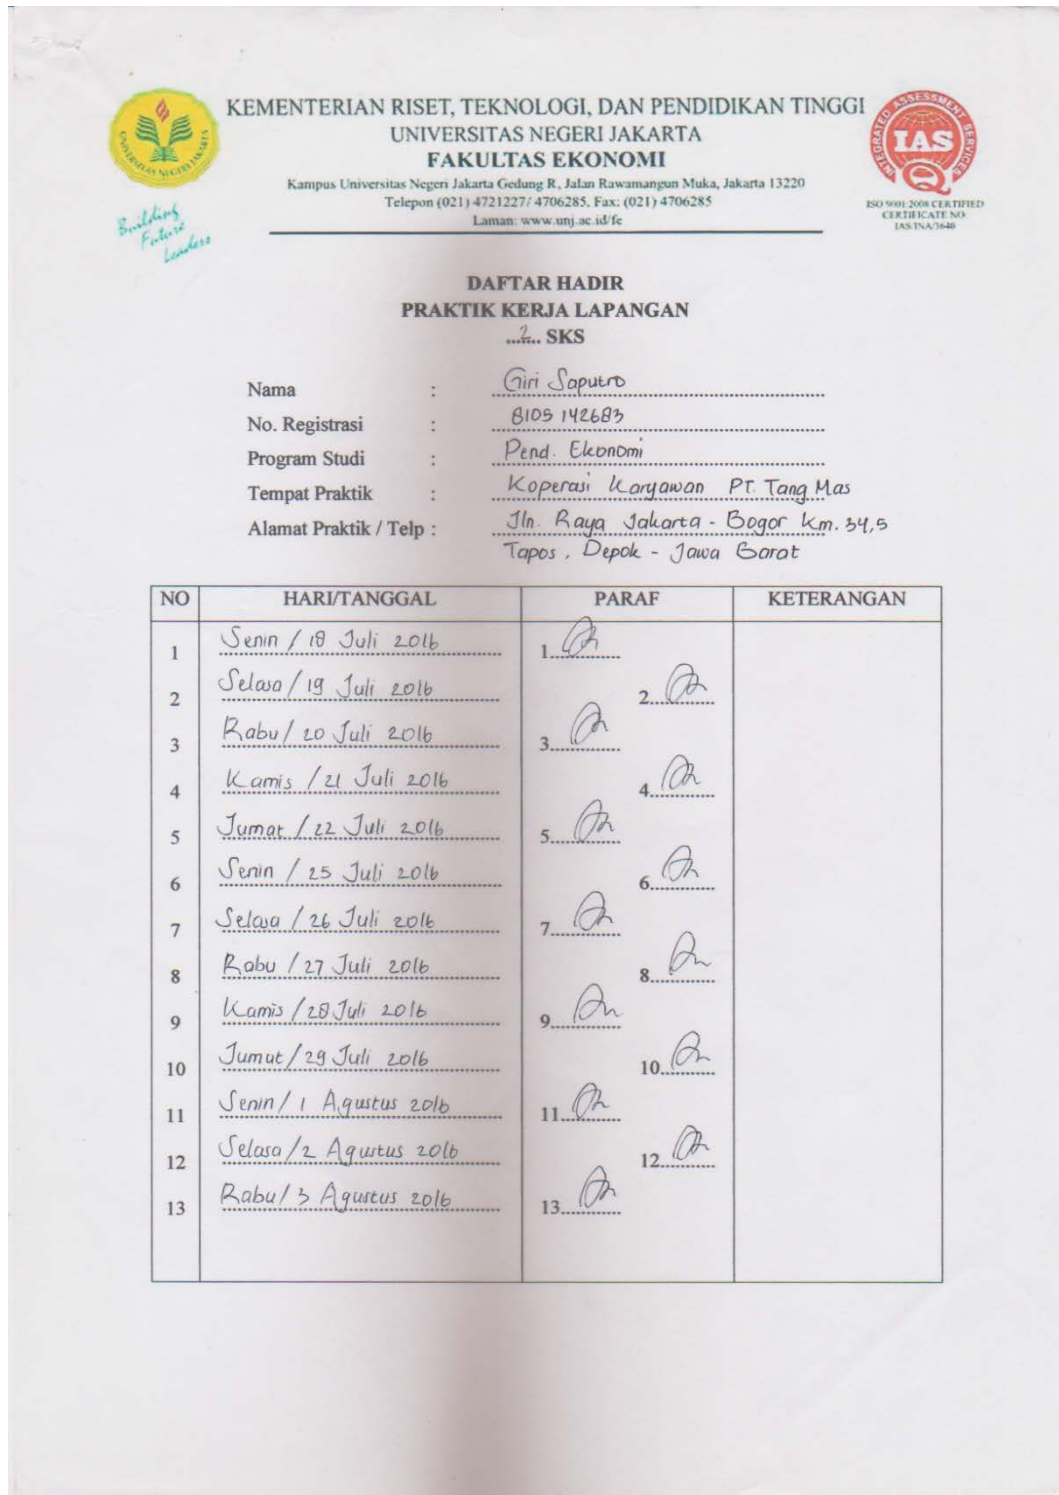 KEMENTERIAN RISET, TEKNOLOGI, DAN PENDIDIKAN TINGGI
UNIVERSITAS NEGERI JAKARTA
FAKULTAS EKONOMI
Kampus Universitas Negeri Jakarta Gedung R, Jalan Rawamangun Muka, Jakarta 13220
Telepon (021) 4721227/ 4706285, Fax: (021) 4706285
Laman: www.unj.ac.id/fe
UNIVERSITAS NEGERI JAKARTA
Building
Future
Leaders
INTEGRATED ASSESSMENT SERVICES
IAS
ISO 9001:2008 CERTIFIED
CERTIFICATE NO:
IAS/INA/3640
DAFTAR HADIR
PRAKTIK KERJA LAPANGAN
...2... SKS
Nama : Giri Saputro
No. Registrasi : 8105 142683
Program Studi : Pend. Ekonomi
Tempat Praktik : Koperasi Karyawan PT. Tang Mas
Alamat Praktik / Telp : Jln. Raya Jakarta - Bogor Km. 34,5
Tapos, Depok - Jawa Barat
NO HARI/TANGGAL PARAF KETERANGAN
1 Senin / 18 Juli 2016 1
2 Selasa / 19 Juli 2016 2
3 Rabu / 20 Juli 2016 3
4 Kamis / 21 Juli 2016 4
5 Jumat / 22 Juli 2016 5
6 Senin / 25 Juli 2016 6
7 Selasa / 26 Juli 2016 7
8 Rabu / 27 Juli 2016 8
9 Kamis / 28 Juli 2016 9
10 Jumat / 29 Juli 2016 10
11 Senin / 1 Agustus 2016 11
12 Selasa / 2 Agustus 2016 12
13 Rabu / 3 Agustus 2016 13